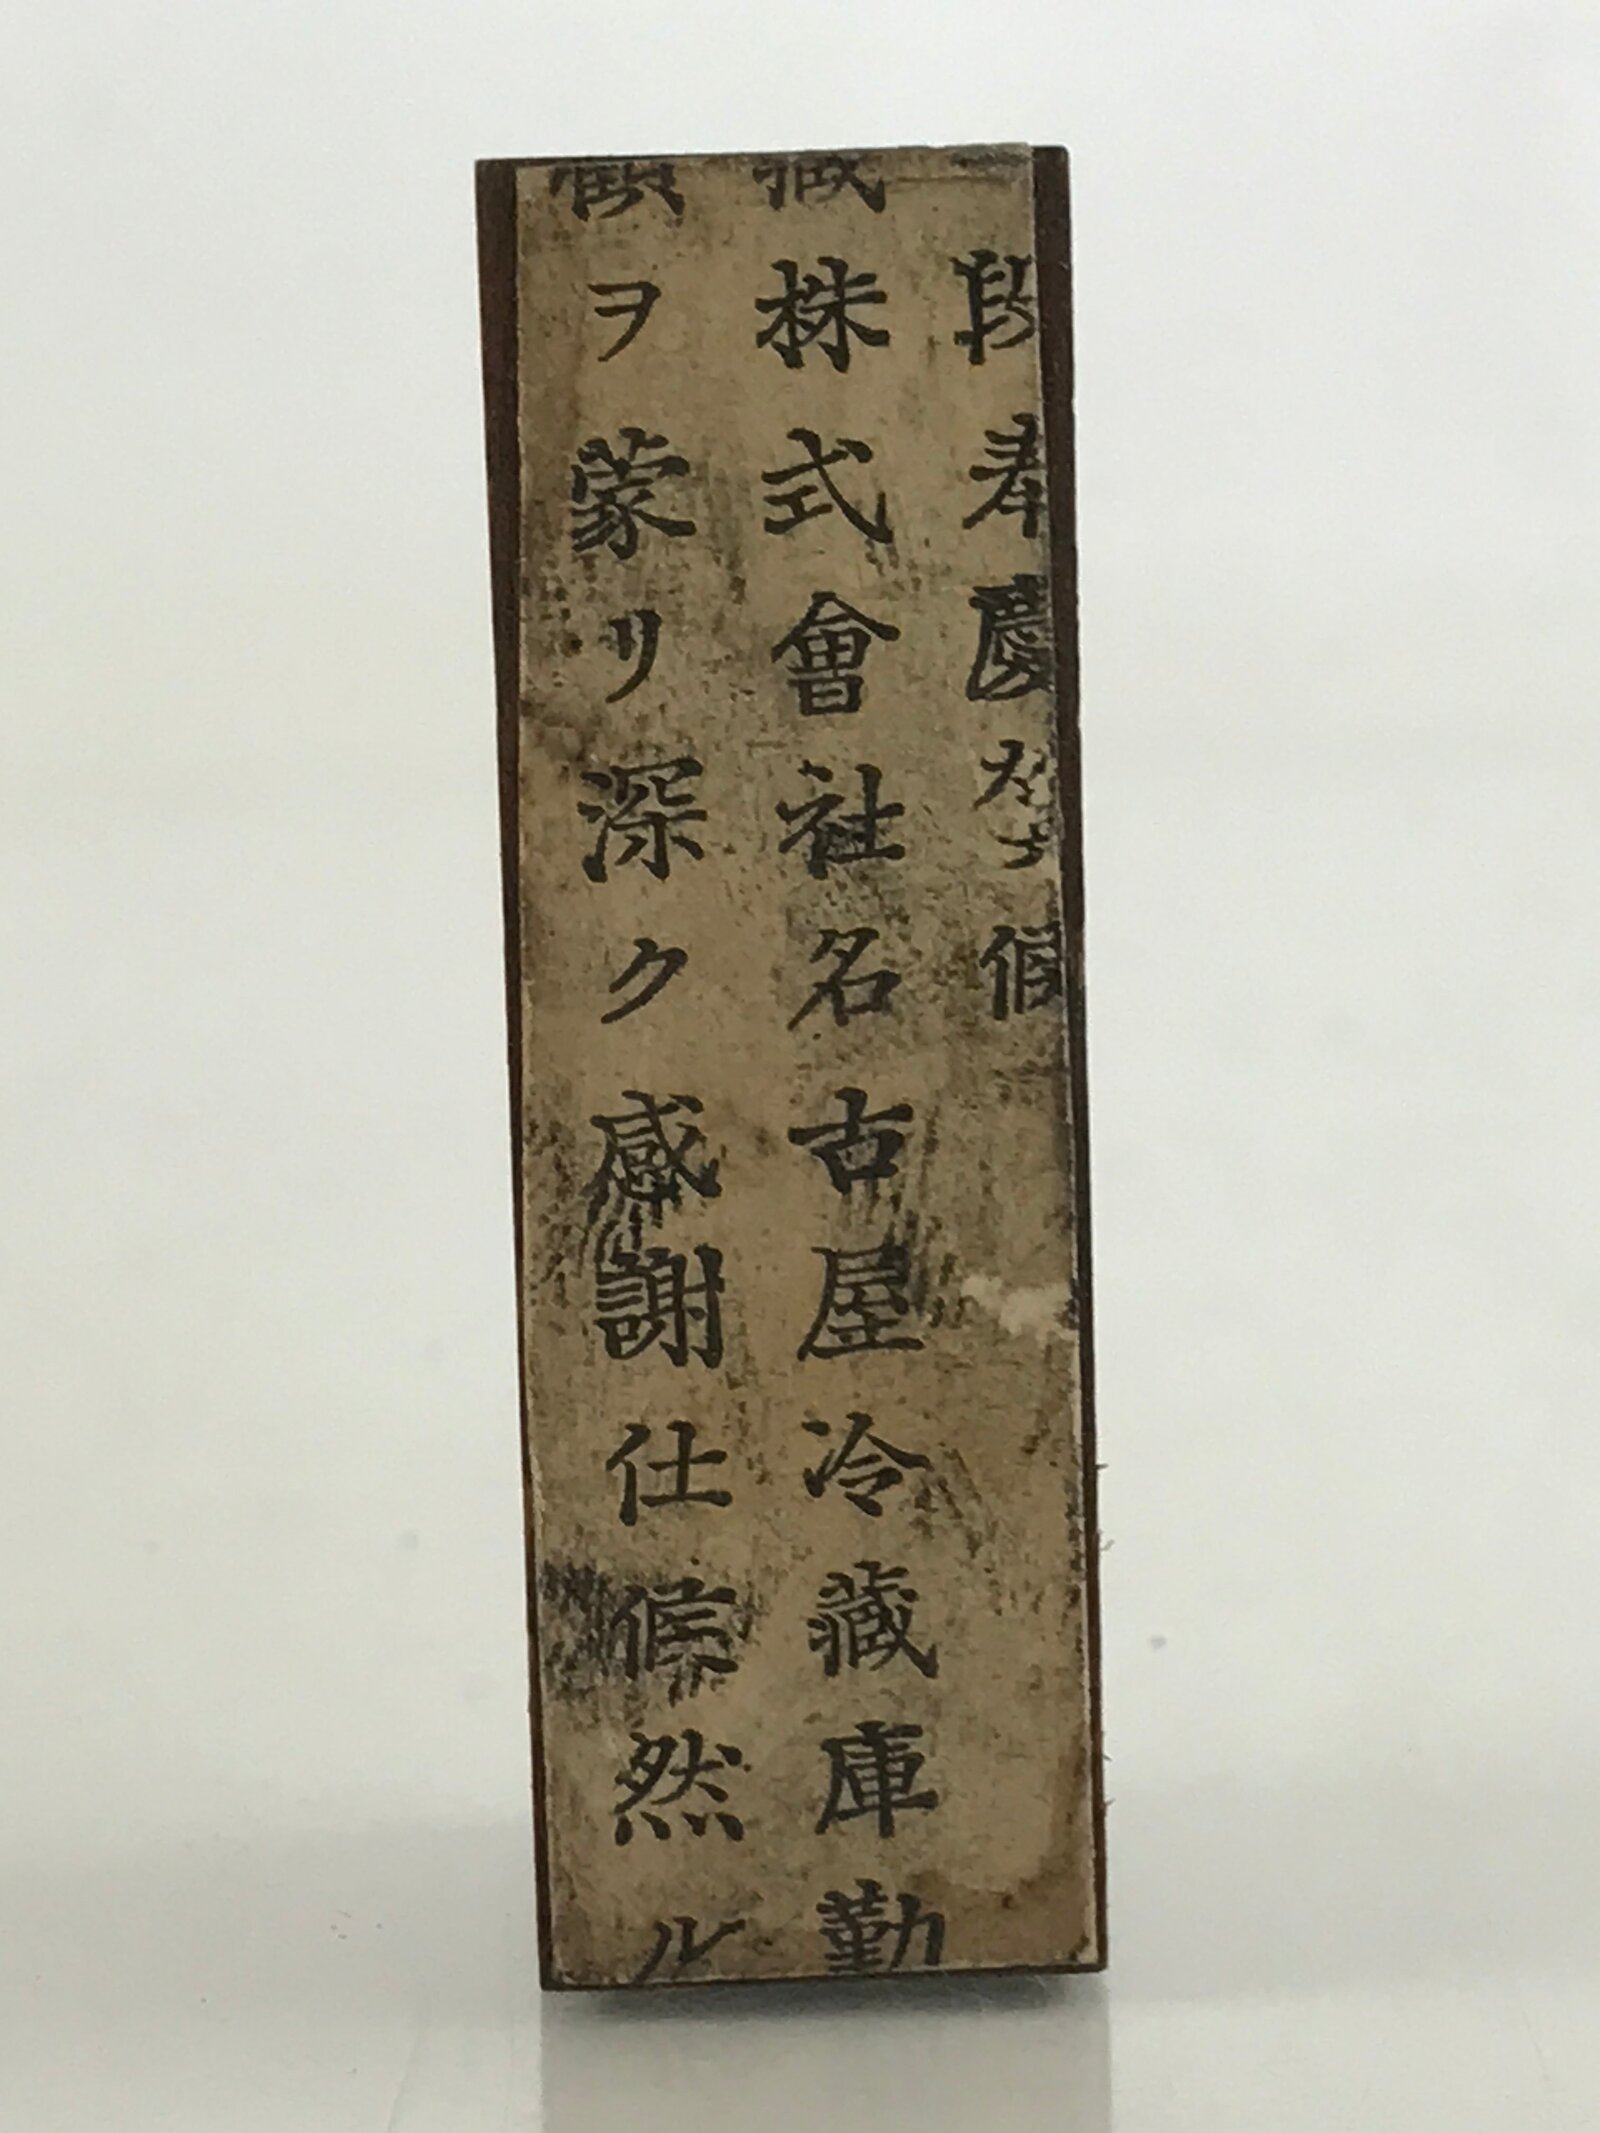 段奉慶賀候
株式會社名古屋冷藏庫勤
ヲ蒙リ深ク感謝仕候然ル